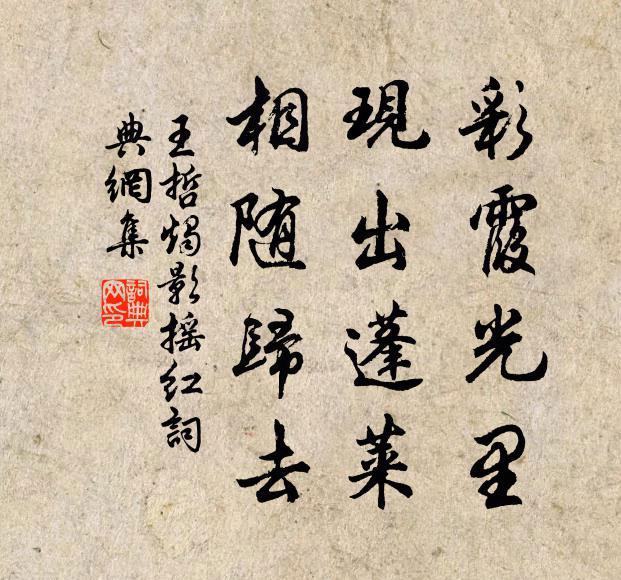 彩霞光里
現出蓬萊
相随歸去
王哲燭影摇红詞
典網集
詞典
网印